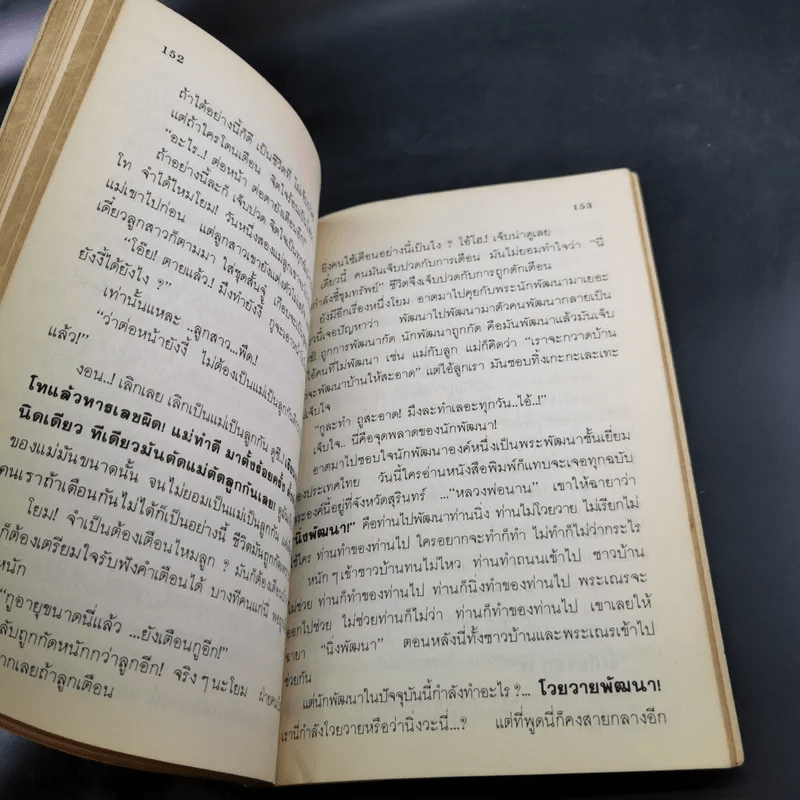 152
ถ้าได้อย่างนี้ก็ดี เป็นชีวิตที่
แต่ถ้าใครโดนเตือน จิตใจร้อน
"อะไร..! ต่อหน้า ต่อตายังเตือนอีก"
ถ้าอย่างนี้ละก็ เจ็บปวด จิตใจเป็นทุกข์
โท จำได้ไหมโยม! วันหนึ่งสองแม่ลูก
แม่เขาไปก่อน แต่ลูกสาวเขายังแต่งตัว
เดี๋ยวลูกสาวก็ตามมา ใส่ชุดสั้นจู๋ เดือน
"โอ๊ย! ตายแล้ว! มึงทำยังงี้ กูจะเอา
ยังงี้ได้ยังไง ?"
เท่านั้นแหละ ..ลูกสาว...ฟืด!
"ว่าต่อหน้ายังงี้ ไม่ต้องเป็นแม่เป็นลูกกัน
แล้ว!"
งอน..! เลิกเลย เลิกเป็นแม่เป็นลูกกัน
โทแล้วหารเลขผิด! แม่ทำดี มาตั้งร้อยครั้ง
นิดเดียว ทีเดียวมันตัดแม่ตัดลูกกันเลย!
ของแม่มันขนาดนั้น จนไม่ยอมเป็นแม่เป็นลูกกัน
คนเราถ้าเตือนกันไม่ได้ก็เป็นอย่างนี้ ชีวิตมันถูกกัด
โยม! จำเป็นต้องเตือนไหมลูก ? มันก็ต้องเตือน
ก็ต้องเตรียมใจรับฟังคำเตือนได้ บางทีคนแก่นี่
หนัก
"กูอายุขนาดนี่แล้ว ...ยังเตือนกูอีก!"
ลับถูกกัดหนักกว่าลูกอีก! จริงๆนะโยม
ากเลยถ้าลูกเตือน
153
ยิ่งคนใช้เตือนอย่างนี้เป็นไง ? โอ้โฮ! เจ็บน่าดูเลย
เดี๋ยวนี้ คนมันเจ็บปวดกับการเตือน มันไม่ยอมทำใจว่า "นี่
กำลังชี้ขุมทรัพย์" ชีวิตจึงเจ็บปวดกับการถูกตักเตือน
ยังมีอีกเรื่องหนึ่งโยม อาตมาไปคุยกับพระนักพัฒนามาเยอะ
นี้เจอปัญหาว่า พัฒนาไปพัฒนามาตัวคนพัฒนากลายเป็น
ถูกการพัฒนากัด นักพัฒนาถูกกัด คือมันพัฒนาแล้วมันเจ็บ
คนที่ไม่พัฒนา เช่น แม่กับลูก แม่ก็คิดว่า "เราจะกวาดบ้าน
จะพัฒนาบ้านให้สะอาด" แต่ไอ้ลูกเรา มันชอบทิ้งเกะกะเละเทะ
เจ็บใจ
"กูละทำ กูสะอาด! มึงละทำเลอะทุกวัน..ไอ้..!"
เจ็บใจ.. นี่คือจุดพลาดของนักพัฒนา!
อาตมาไปชอบใจนักพัฒนาองค์หนึ่งเป็นพระพัฒนาชั้นเยี่ยม
องประเทศไทย วันนี้ใครอ่านหนังสือพิมพ์ก็แทบจะเจอทุกฉบับ
พระองค์นี้อยู่ที่จังหวัดสุรินทร์ ..."หลวงพ่อนาน" เขาให้ฉายาว่า
นิ่งพัฒนา!" คือท่านไปพัฒนาท่านนิ่ง ท่านไม่โวยวาย ไม่เรียกไม่
ใช้ใคร ท่านทำของท่านไป ใครอยากจะทำก็ทำ ไม่ทำก็ไม่ว่ากระไร
หนักๆเข้าชาวบ้านทนไม่ไหว ท่านทำถนนเข้าไป ชาวบ้าน
ไม่ช่วย ท่านก็ทำของท่านไป ท่านก็นิ่งทำของท่านไป พระเณรจะ
ออกไปช่วย ไม่ช่วยท่านก็ไม่ว่า ท่านก็ทำของท่านไป เขาเลยให้
ฉายา "นิ่งพัฒนา" ตอนหลังนี่ทั้งชาวบ้านและพระเณรเข้าไป
ช่วยกัน
แต่นักพัฒนาในปัจจุบันนี้กำลังทำอะไร ?... โวยวายพัฒนา!
เรานี่กำลังโวยวายหรือว่านิ่งวะนี่...? แต่ที่พูดนี่ก็คงสายกลางอีก